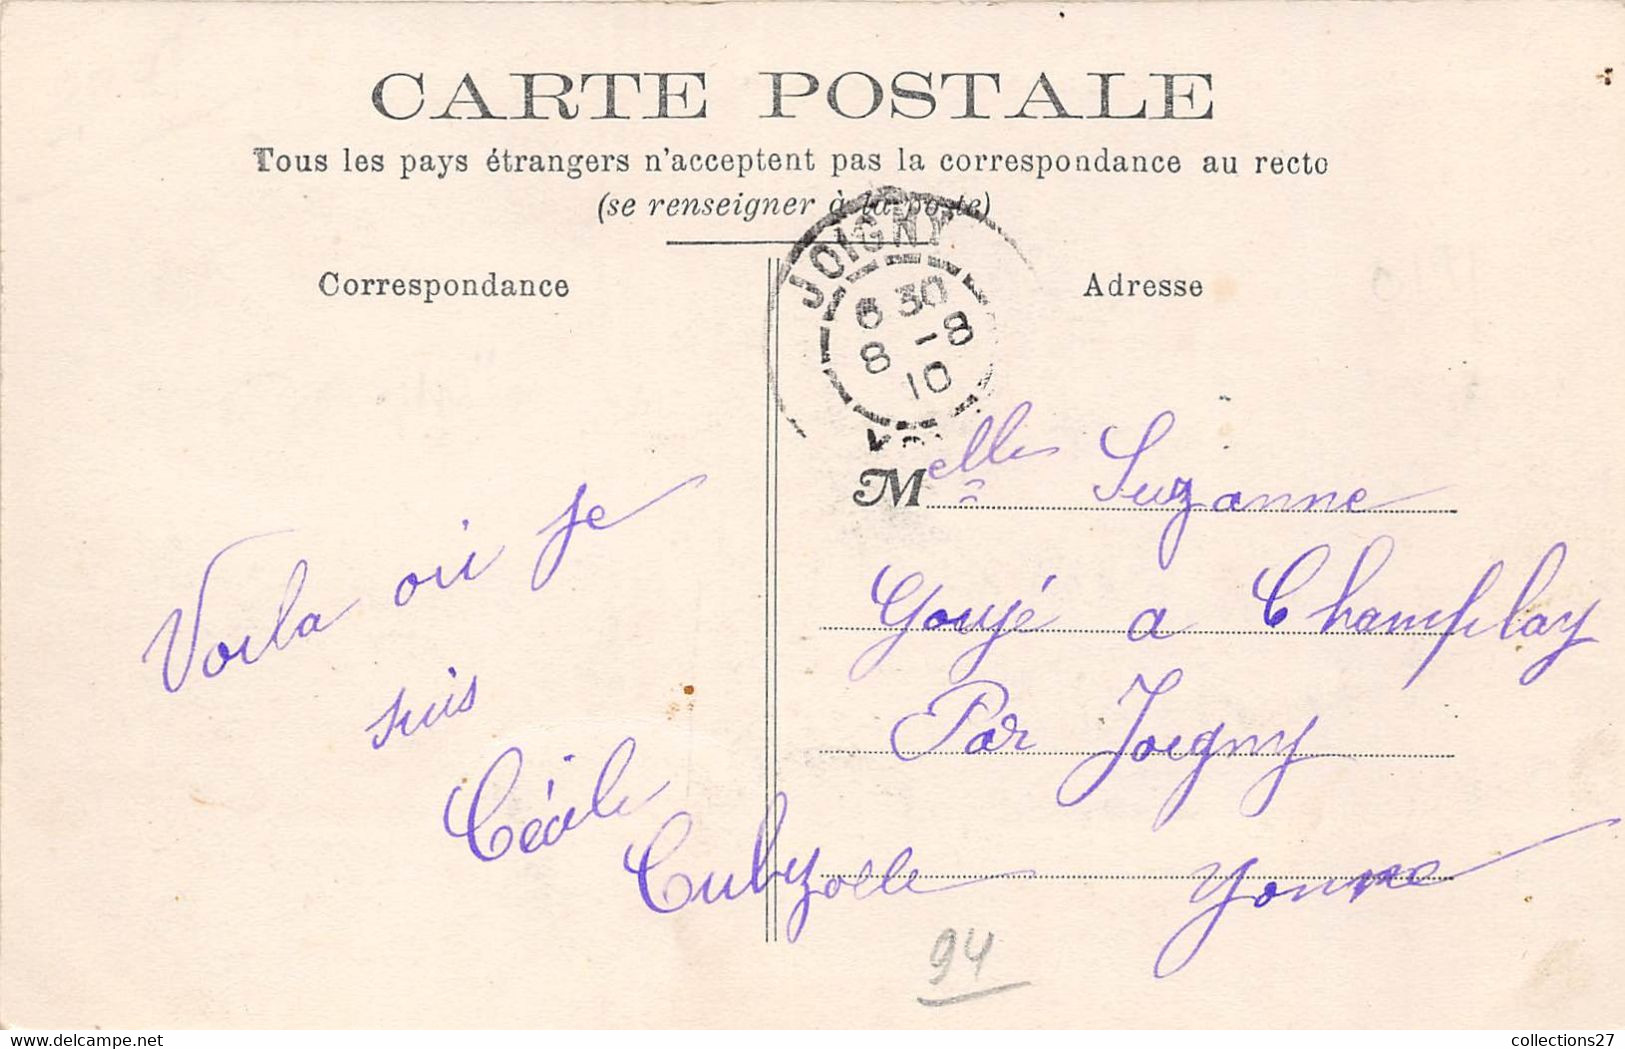 CARTE POSTALE
Tous les pays étrangers n'acceptent pas la correspondance au recto
(se renseigner à la poste)
Correspondance
Adresse
JOIGNY
6 30
8 - 8
10
Voila ou je
suis
Cécile
Melle Suzanne
Goujé a Champlay
Par Joigny
Yonne
94
collections27